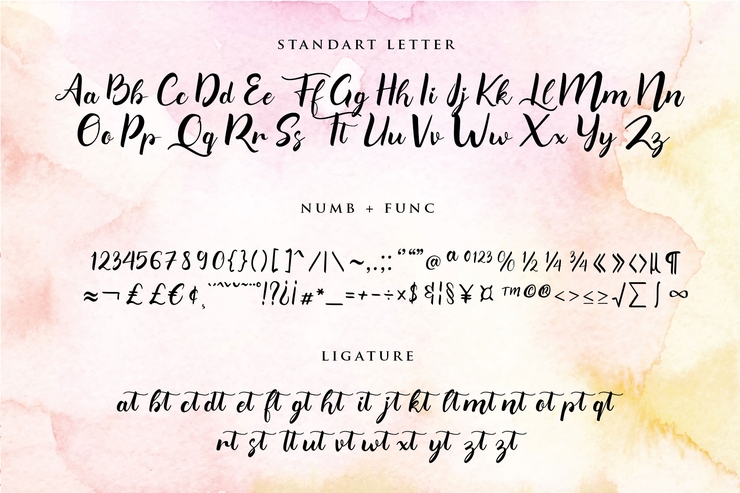 STANDART LETTER
Aa Bb Cc Dd Ee Ff Gg Hh Ii Jj Kk Ll Mm Nn
Oo Pp Qq Rr Ss Tt Uu Vv Ww Xx Yy Zz
NUMB + FUNC
1234567890{}()[]^/|\~,.;:‘’“”@ ª 0123 % ½ ¼ ¾ « » ‹ › µ ¶
≈ ¬ £ £ € ¢ ¸ !?¿¡ #*_=+-÷×$ & ¦ § ¥ ¤ ™©®<>≤≥√∑∫∞
LIGATURE
at bt ct dt et ft gt ht it jt kt lt mt nt ot pt qt
rt st tt ut vt wt xt yt zt zt